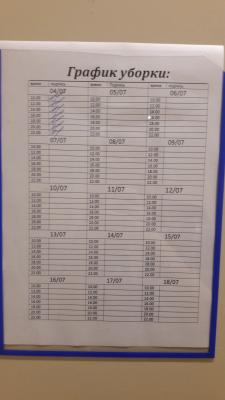 График уборки:
время подпись время Подпись время подпись
04/07 05/07 06/07
10.00 10.00 10.00
12.00 12.00 12.00
14.00 14.00 14.00
16.00 16.00 16.00
18.00 18.00 18.00
20.00 20.00 20.00
22.00 22.00 22.00
07/07 08/07 09/07
10.00 10.00 10.00
12.00 12.00 12.00
14.00 14.00 14.00
16.00 16.00 16.00
18.00 18.00 18.00
20.00 20.00 20.00
22.00 22.00 22.00
10/07 11/07 12/07
10.00 10.00 10.00
12.00 12.00 12.00
14.00 14.00 14.00
16.00 16.00 16.00
18.00 18.00 18.00
20.00 20.00 20.00
22.00 22.00 22.00
13/07 14/07 15/07
10.00 10.00 10.00
12.00 12.00 12.00
14.00 14.00 14.00
16.00 16.00 16.00
18.00 18.00 18.00
20.00 20.00 20.00
22.00 22.00 22.00
16/07 17/07 18/07
10.00 10.00 10.00
12.00 12.00 12.00
14.00 14.00 14.00
16.00 16.00 16.00
18.00 18.00 18.00
20.00 20.00 20.00
22.00 22.00 22.00